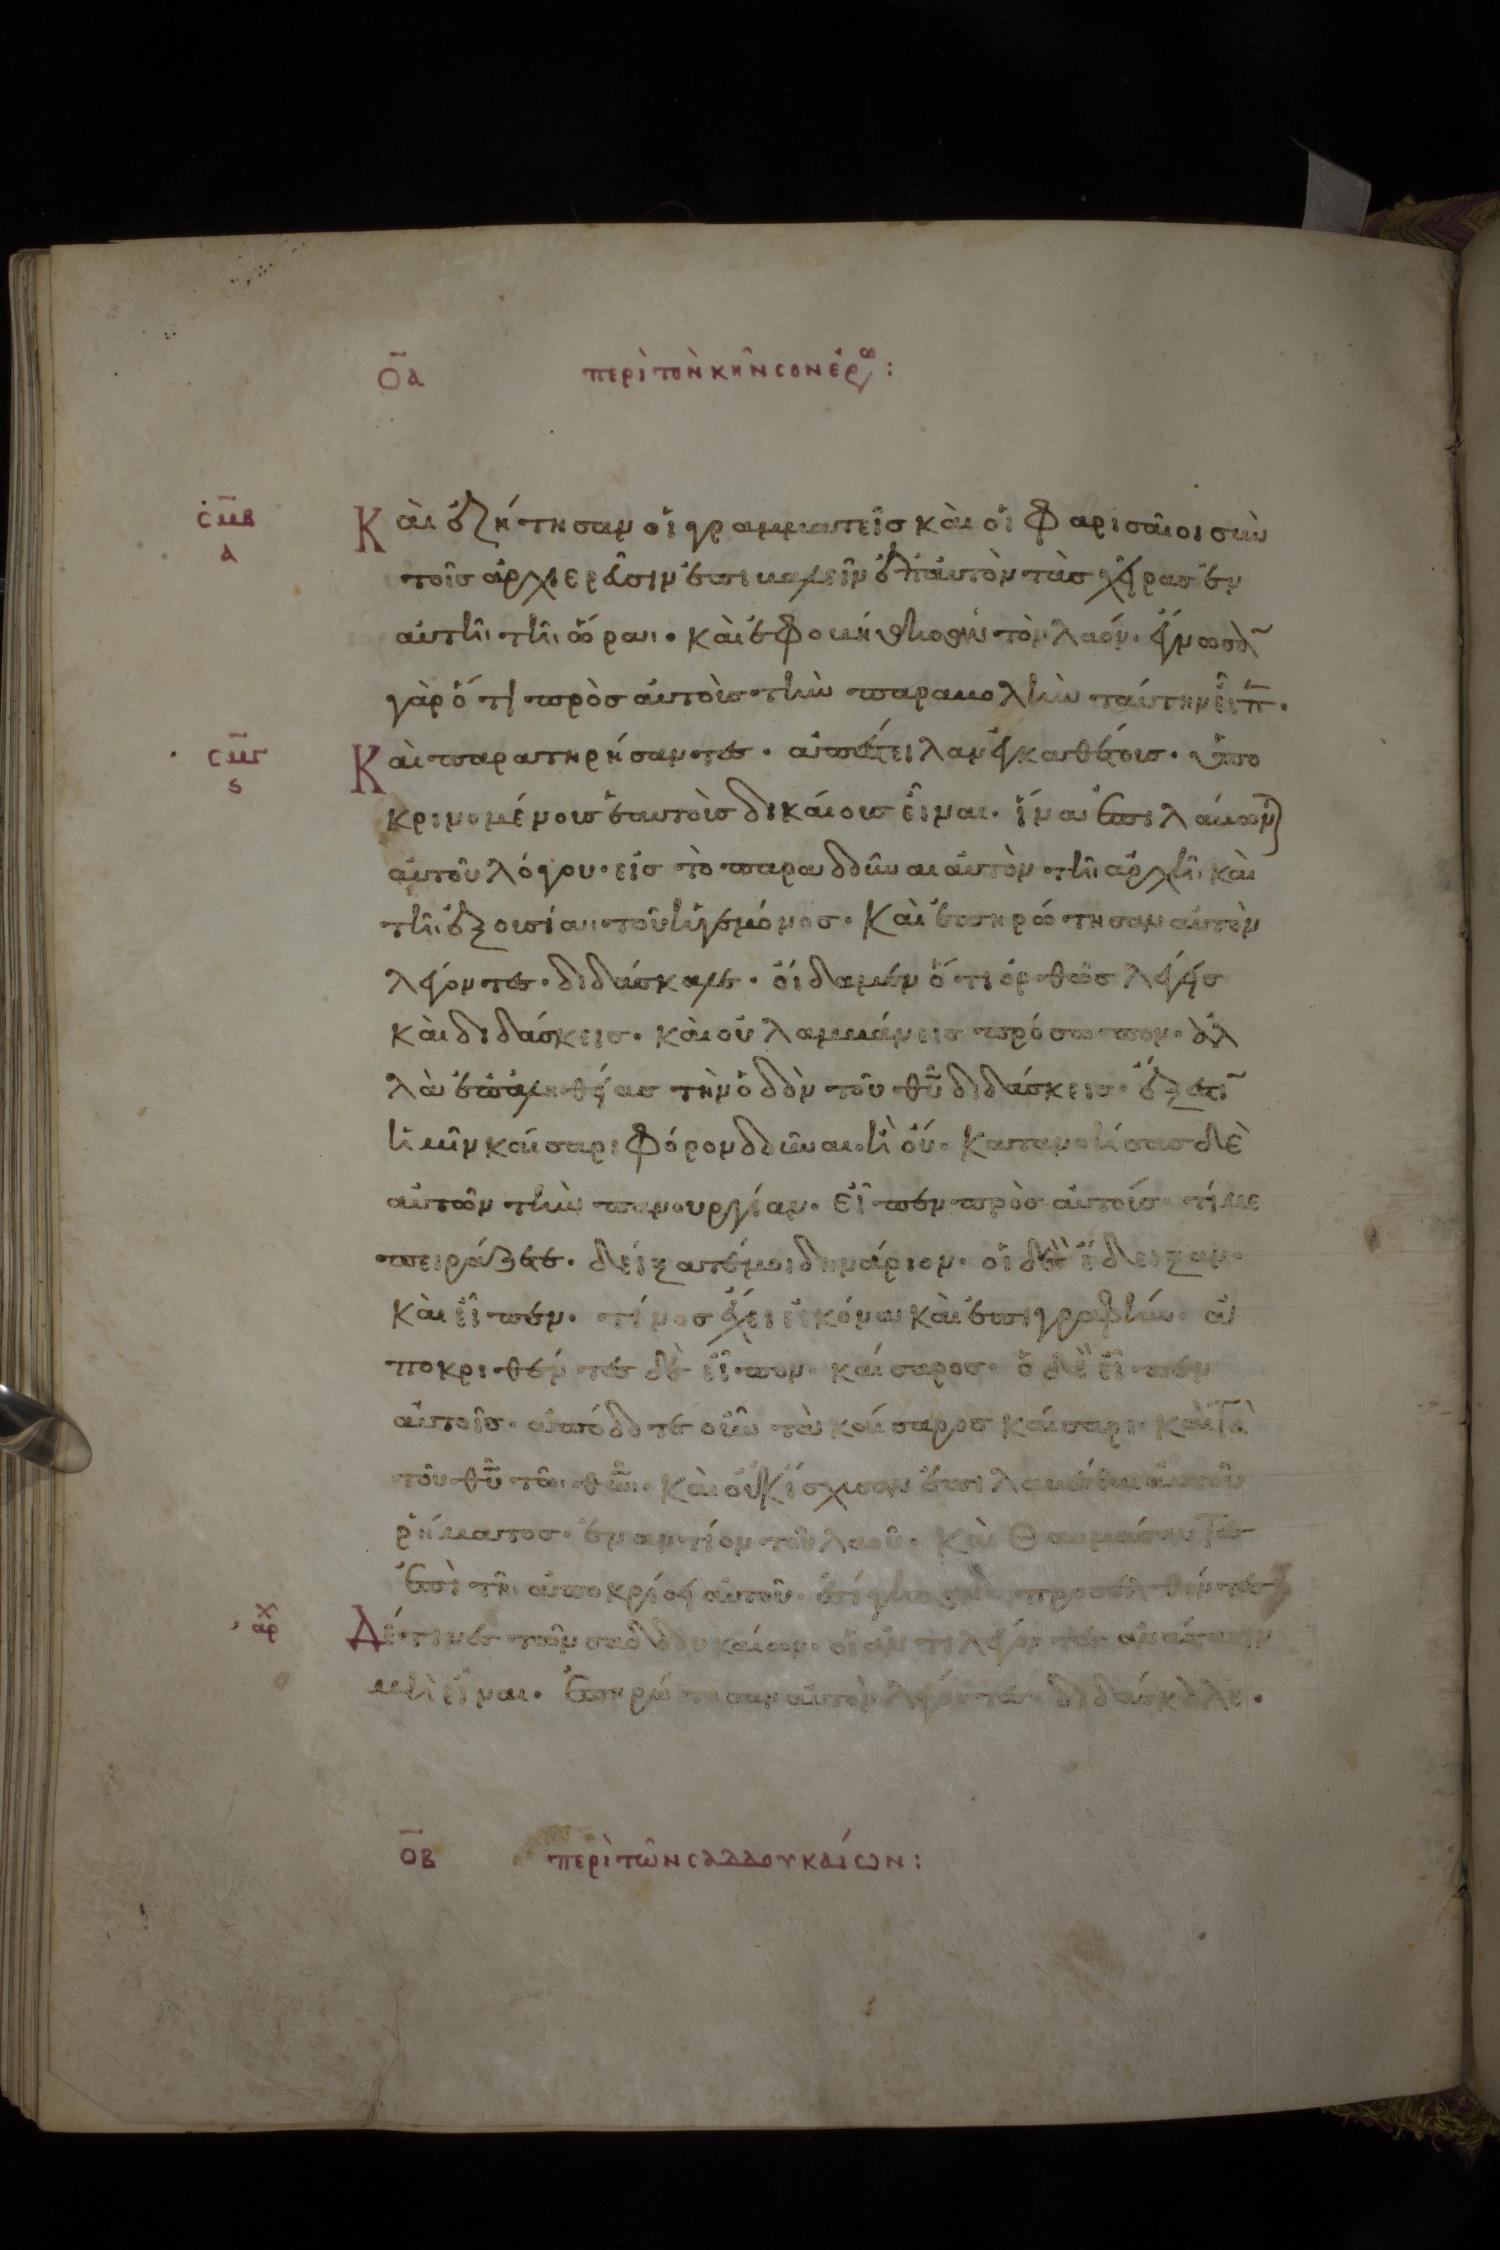 ο̅α περὶ τὸν κῆνσον ἐρου :
σ̅μ̅β
α
Καὶ ἐζήτησαν οἱ γραμματεῖς καὶ οἱ Φαρισαῖοι σὺν
τοῖς ἀρχιερεῦσιν ἐπιβαλεῖν ἐπ' αὐτὸν τὰς χεῖρας ἐν
αὐτῆι τῆι ὥραι. καὶ ἐφοβήθησαν τὸν λαόν. ἔγνωσαν
γὰρ ὅτι πρὸς αὐτοὺς τὴν παραβολὴν ταύτην εἶπ̅.
σ̅μ̅γ
ς
Καὶ παρατηρήσαντες. ἀπέστειλαν ἐγκαθέτους. ὑπο
κρινομένους ἑαυτοὺς δικαίους εἶναι. ἵνα ἐπιλάβων
αὐτοῦ λόγου. εἰς τὸ παραδοῦναι αὐτὸν τῆι ἀρχῆι καὶ
τῆι ἐξουσίαι τοῦ ἡγεμόνος. Καὶ ἐπηρώτησαν αὐτὸν
λέγοντες. διδάσκαλε. οἴδαμεν ὅτι ὀρθῶς λέγεις
καὶ διδάσκεις. καὶ οὐ λαμβάνεις πρόσωπον. ἀλ
λὰ ἐπ' ἀληθείας τὴν ὁδὸν τοῦ θ̅υ̅ διδάσκεις. ἔξεστι̅
ἡμῖν καίσαρι φόρον δοῦναι. ἢ οὔ. Κατανοήσας δὲ
αὐτῶν τὴν πανουργίαν. εἶπεν πρὸς αὐτούς. τί με
πειράζετε. δείξατέ μοι δηνάριον. οἱ δὲ ἔδειξαν.
καὶ εἶπεν. τίνος ἔχει εἰκόνα καὶ ἐπιγραφήν. ἀ
ποκριθέντες δὲ εἶπον. καίσαρος. ὁ δὲ εἶπεν
αὐτοῖς. ἀπόδοτε οὖν τὰ καίσαρος καίσαρι. καὶ τὰ
τοῦ θ̅υ̅ τῶι θ̅ω̅ι. Καὶ οὐκ ἴσχυσαν ἐπιλαβέσθαι αὐτοῦ
ῥήματος. ἐναντίον τοῦ λαοῦ. Καὶ θαυμάσαντες
ἐπὶ τῆι ἀποκρίσει αὐτοῦ. ἐσίγησαν. προσελθόντες
αρχ
Δέ τινες τῶν σαδδουκαίων. οἱ ἀντιλέγοντες ἀνάστασιν
μὴ εἶναι. ἐπηρώτησαν αὐτὸν λέγοντες. διδάσκαλε.
ο̅β περὶ τῶν σαδδουκαίων :